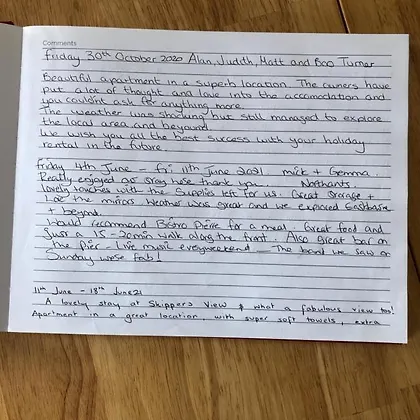 Comments
Friday 30th October 2020 Alan, Judith, Matt and Boo Turner
Beautiful apartment in a superb location. The owners have
put a lot of thought and love into the accomodation and
you couldn't ask for anything more.
The weather was shocking but still managed to explore
the local area and beyond.
We wish you all the best success with your holiday
rental in the future.
Friday 4th June – Fri 11th June 2021 mick + Gemma.
Really enjoyed our stay here thank you. Northants.
lovely touches with the supplies left for us. Great storage +
Love the mirrors. Weather was great and we explored Eastbourne
+ beyond.
Would recommend Bistro Pierre for a meal. Great food and
Just a 15-20min walk along the front. Also great bar on
the pier - Live music every weekend - The band we saw on
Sunday were fab!
11th June - 18th June 21
A lovely stay at Skippers View & what a fabulous view too!
Apartment in a great location, with super soft towels, extra